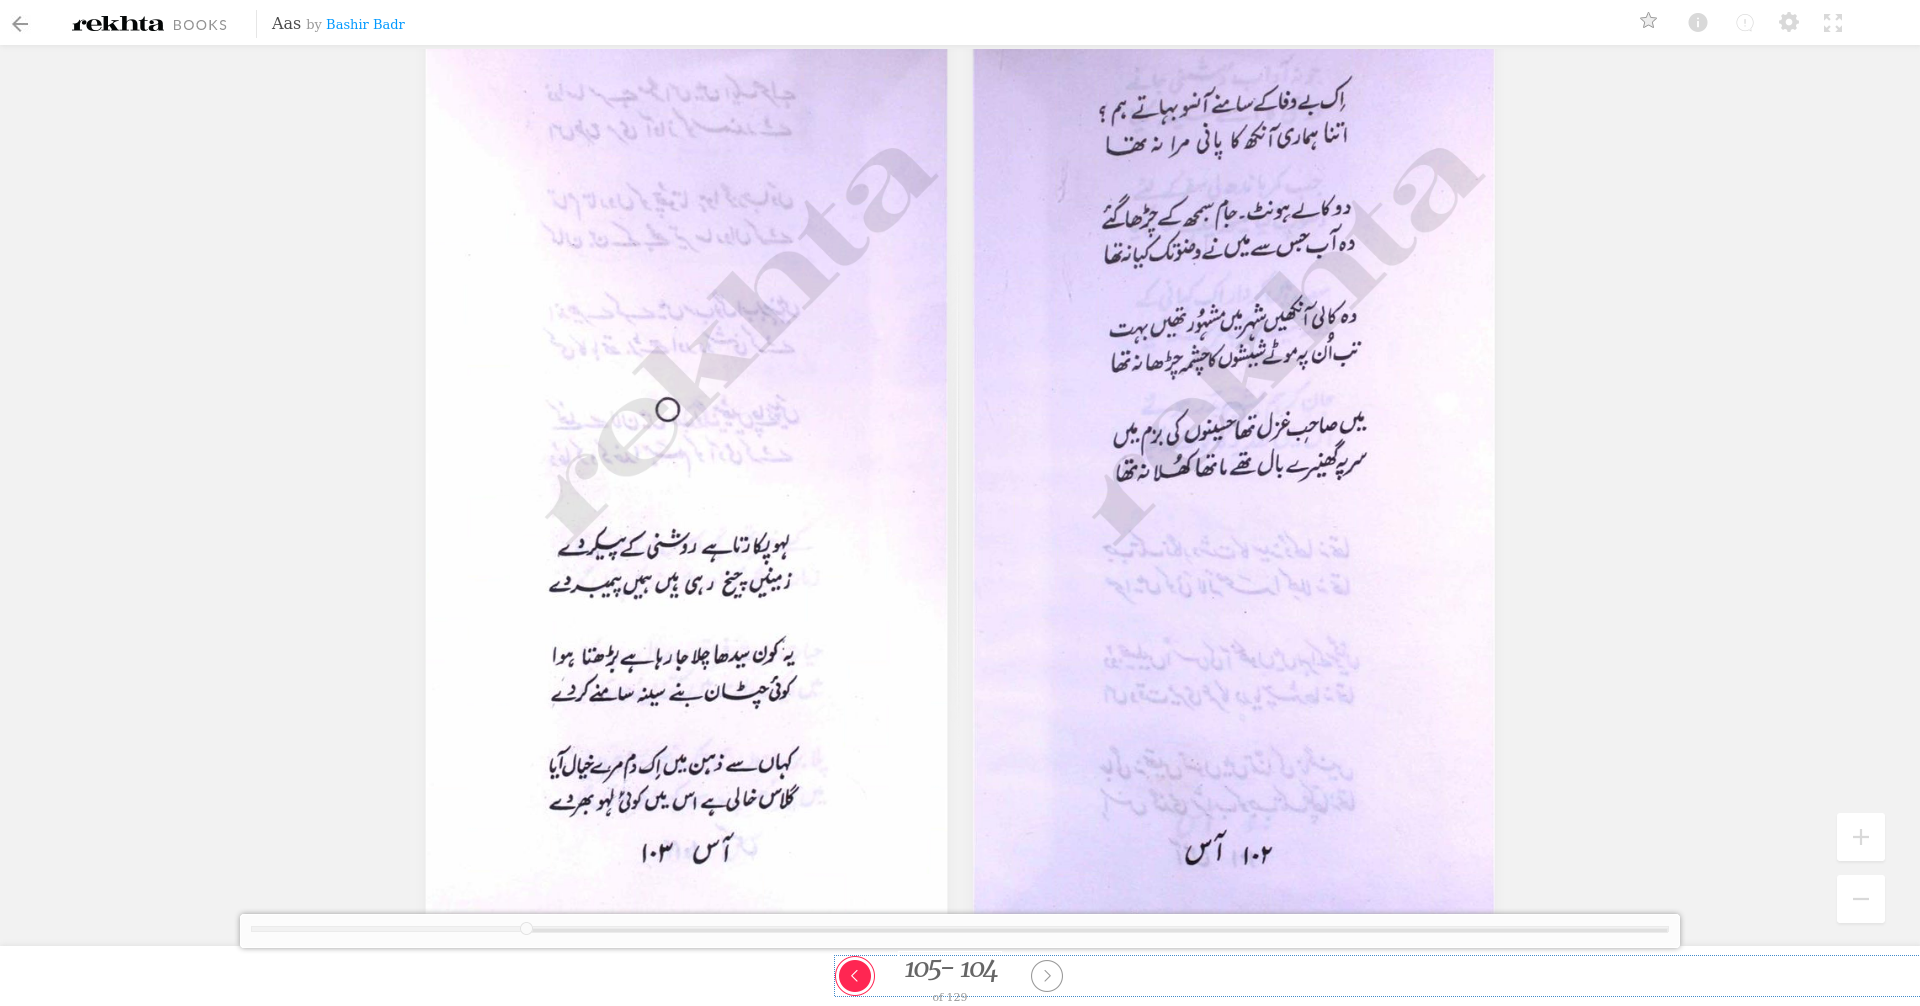 rekhta BOOKS Aas by Bashir Badr
اِک بے وفا کے سامنے آنسو بہاتے ہم ؟
اتنا ہماری آنکھ کا پانی مرا نہ تھا
دو کالے ہونٹ۔ جام سمجھ کے چڑھا گئے
وہ آب جس سے میں نے وضو تک کیا نہ تھا
وہ کالی آنکھیں شہر میں مشہُور تھیں بہت
تب اُن پہ موٹے شیشوں کا چشمہ چڑھا نہ تھا
میں صاحبِ غزل تھا حسینوں کی بزم میں
سر پہ گھنیرے بال تھے ماتھا کھُلا نہ تھا
۱۰۲ آس
rekhta
لہو پکارتا ہے روشنی کے پیکر دے
زمینیں چیخ رہی ہیں ہمیں پیمبر دے
یہ کون سیدھا چلا جا رہا ہے بڑھتا ہوا
کوئی چٹان بنے سینہ سامنے کر دے
کہاں سے ذہن میں اِک دم مرے خیال آیا
گلاس خالی ہے اس میں کوئی لہو بھر دے
آس ۱۰۳
rekhta
105- 104
of 129